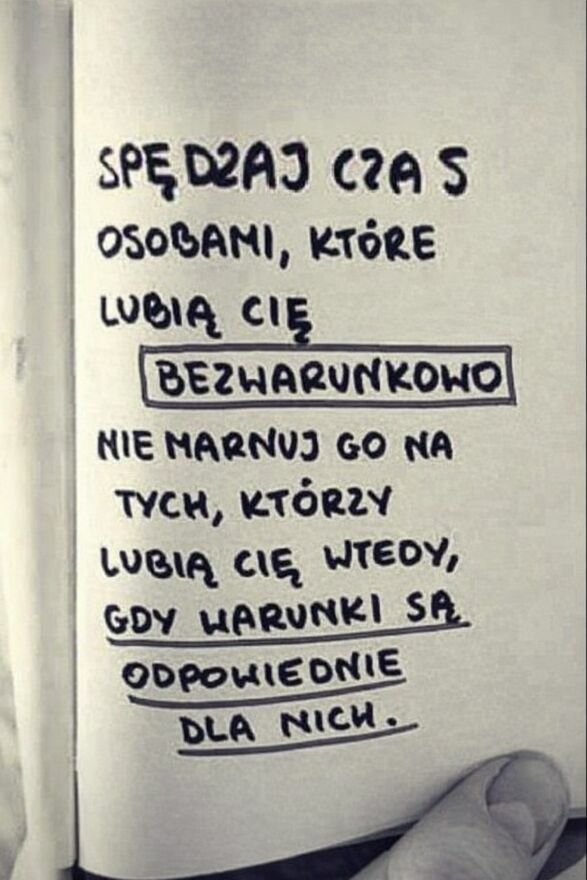 SPĘDZAJ CZAS
OSOBAMI, KTÓRE
LUBIĄ CIĘ
BEZWARUNKOWO
NIE MARNUJ GO NA
TYCH, KTÓRZY
LUBIĄ CIĘ WTEDY,
GDY WARUNKI SĄ
ODPOWIEDNIE
DLA NICH.